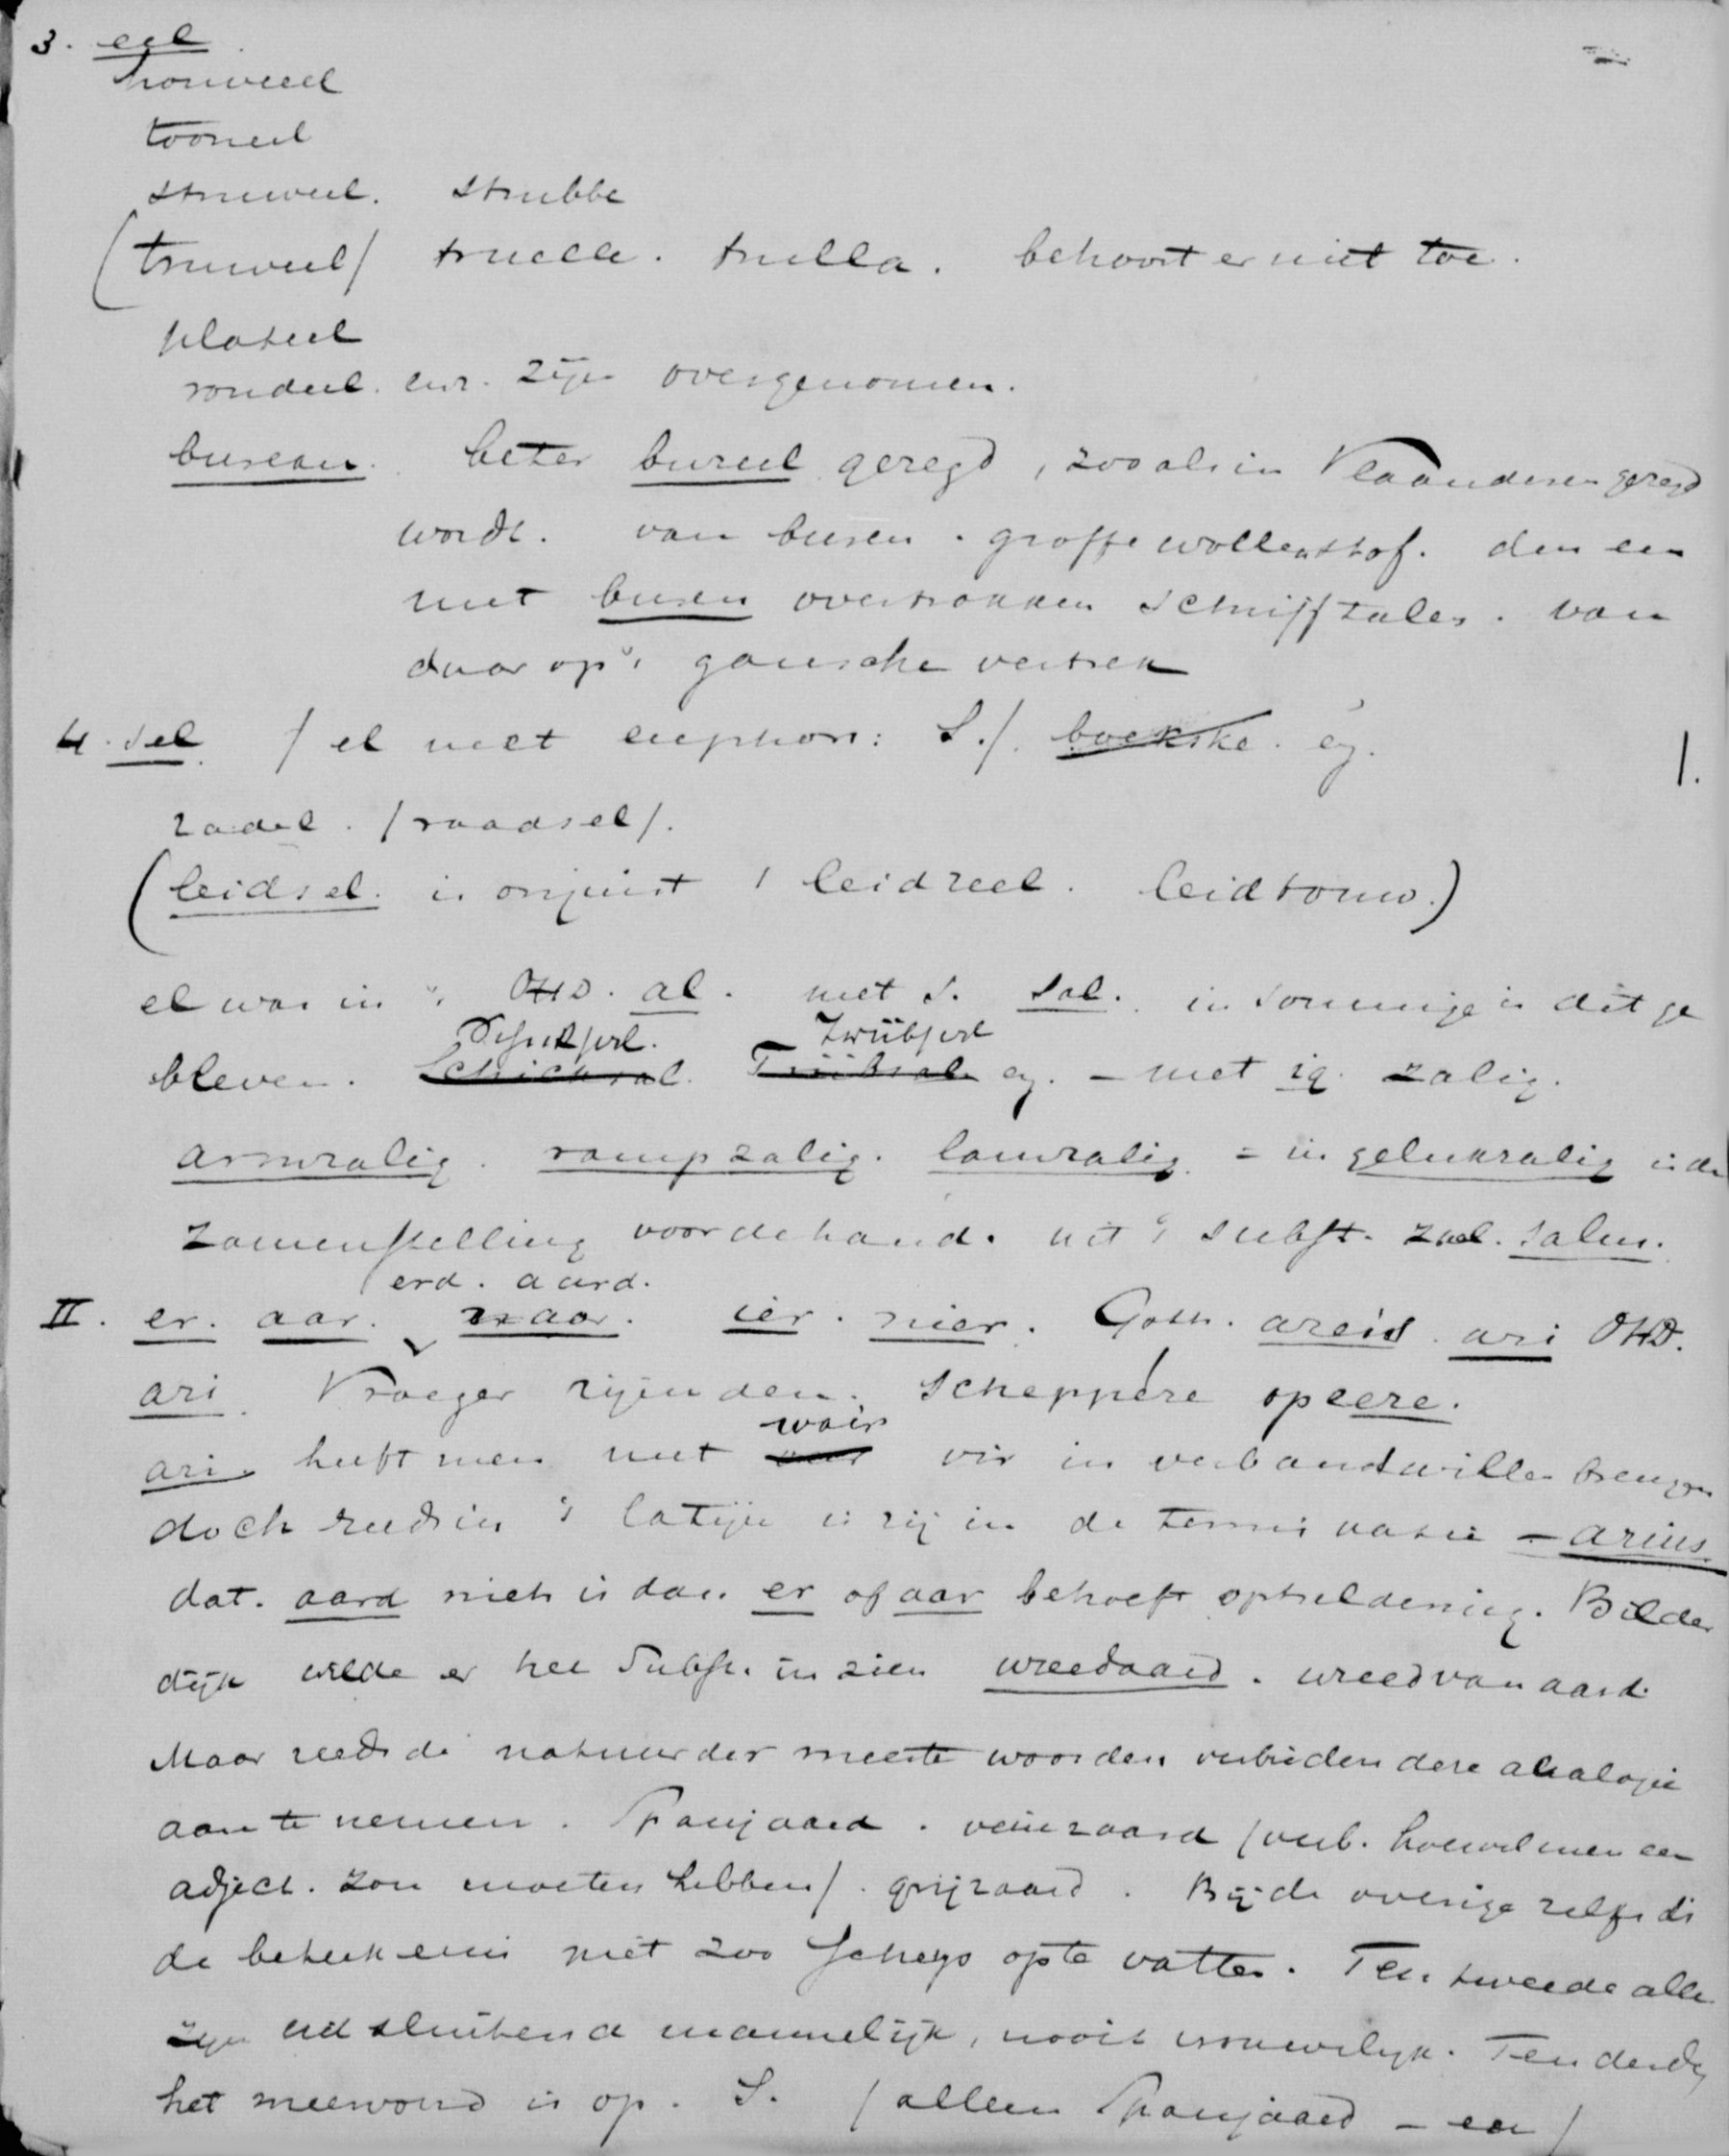 3. eel
houweel
tooneel
struweel. strubbe
(truweel) truelle. trulla. behoort er niet toe.
plateel
rondeel. enz. zijn overgenomen.
bureau. beter bureel gezegd, zooals in Vlaanderen gezegd
wordt. van buren. groffe wollenstof. den een
met buren overtrokken schrijftafel. van
daar op 't gansche vertrek
4. sel (el met euphon: S.). boekske. eg. 1.
zadel. (raadsel).
(leidsel. is onjuist 1 leidzeel. leidtouw.)
el was in 't OHD. al. met s. sal. in sommige is dit ge
Schicksal. Trübsal
bleven. Schicksal. Trübsal eg. – met ig. zalig.
armzalig. rampzalig. lamzalig. = in gelukzalig is de
zamenstelling voor de hand. uit 't subst. zael. salus.
erd. aard.
II. er. aar. naar. ier. nier. Goth. areis. ari OHD.
ari. Vroeger zijnden. Scheppére opeere.
wair
ari. heeft men met vir in verband willen brengen
doch reeds in 't latijn is zij in de terminatie – arius.
dat. aard niets is dan er of aar behoeft opheldering. Bilder
dijk wilde er het Subst. in zien wreedaard. wreed van aard.
Maar reeds de natuur der meeste woorden verbieden deze analogie
aan te nemen. Spanjaard. veinzaard (verb. hoewel men een
adject. zou moeten hebben). grijzaard. Bij de overige zelfs is
de beteekenis niet zoo scherp op te vatten. Ten tweede alle
zijn uitsluitend mannelijk, nooit vrouwelijk. Ten derde
het meervoud is op. S. (alleen Spanjaard – en)